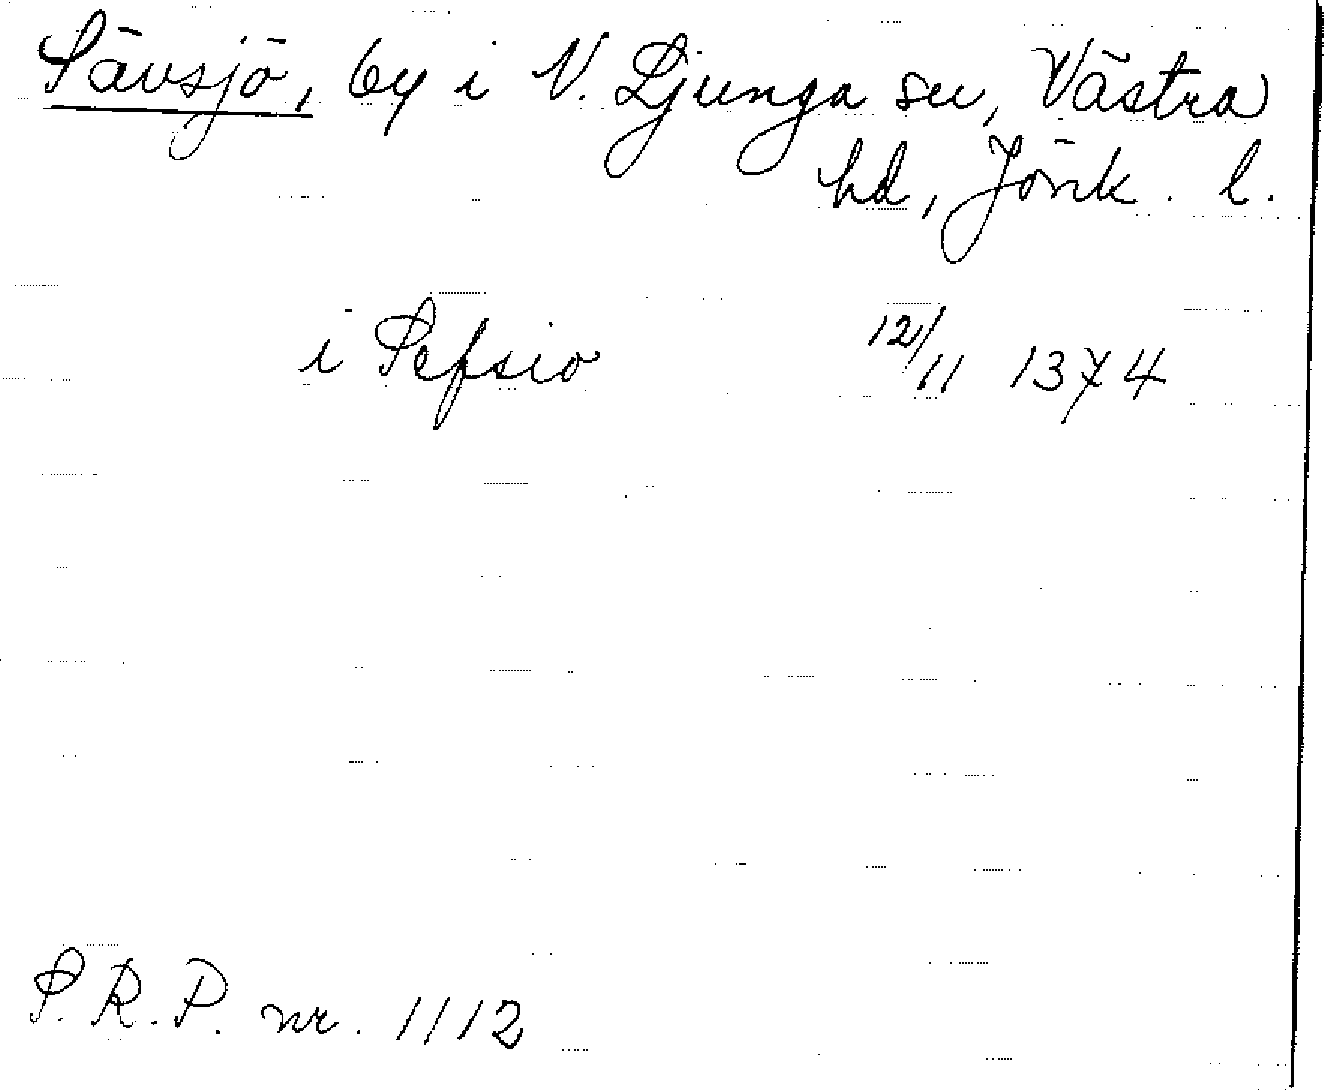 Sävsjö, by i N. Ljunga sn, Västra
hd, Jönk. l.
i Sefsio 12/11 1374
S.R.P. nr. 1112